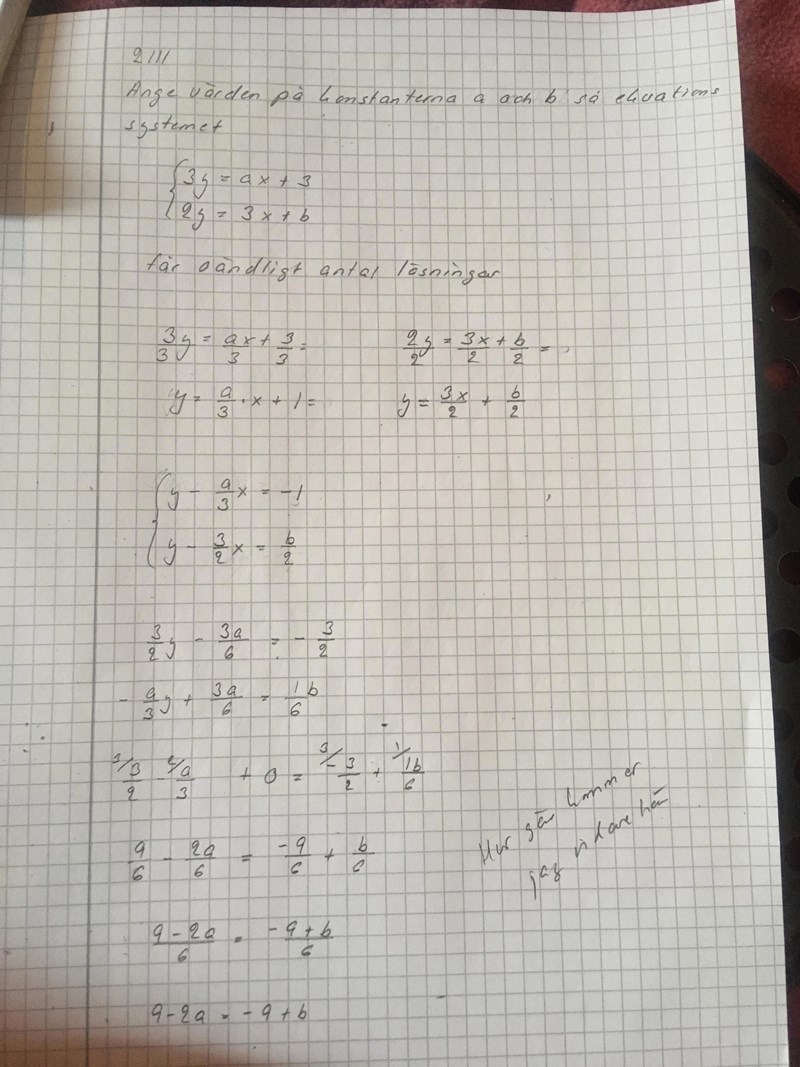 2111
Ange värden på konstanterna a och b så ekvations
systemet
{ 3y = ax + 3
2y = 3x + b
får oändligt antal lösningar
3y/3 = ax/3 + 3/3 = 2y/2 = 3x/2 + b/2 =
y = a/3 · x + 1 = y = 3x/2 + b/2
{ y - a/3 x = -1
y - 3/2 x = b/2
3/2 y - 3a/6 = - 3/2
- a/3 y + 3a/6 = 1b/6
3/ 3/2 - 2/ a/3 + 0 = 3/ -3/2 + 1/ 1b/6
9/6 - 2a/6 = -9/6 + b/6
Hur går kommer
jag vidare här
9 - 2a/6 = -9 + b/6
9 - 2a = -9 + b